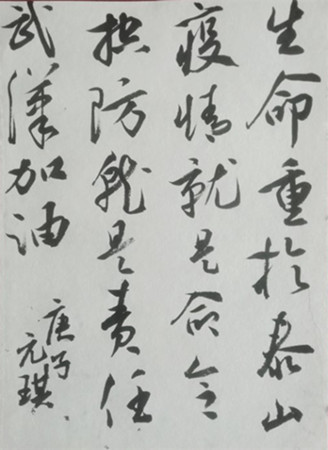 生命重于泰山
疫情就是命令
控防就是责任
武漢加油
庚子
元琪